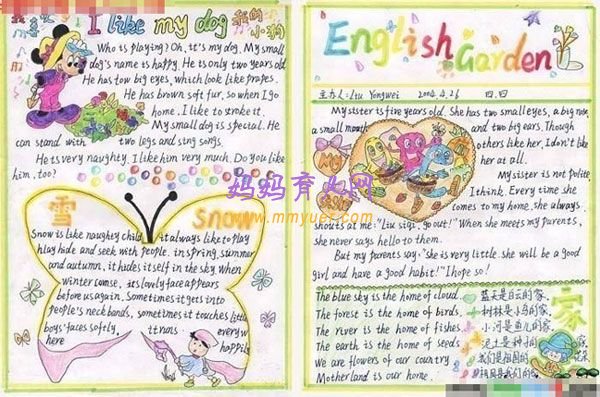 I like my dog 我的小狗
Who is playing? Oh, it's my dog. My small
dog's name is happy. He is only two years old
He has two big eyes, which look like prapes.
He has brown soft fur, so when I go
home. I like to stroke it.
My small dog is special. He
can stand with two legs and sing songs.
He is very naughty. I like him very much. Do you like
him, too?
雪 Snow
Snow is like naughty child, it always like to play
hlay hide and seek with people. in spring, summer
and autumn, it hides itself in the sky. When
winter comse, its lovely face appears
before us again. Sometimes it gets into
people's neck bands, sometimes it touches little
boys' faces softly, it trans everyw
here happily
English Garden
主办人: Liu Yongwei 2004.4.26 四.四
My sister is five years old. She has two small eyes, a big nose,
a small mouth and two big ears. Though
others like her, I don't like
her at all.
My sister is not polite,
I think. Every time she
comes to my home, she always
shouts at me: "Liu siqi, go out!" When she meets my parents,
she never says hello to them.
But my parents say: "she is very little. she will be a good
girl and have a good habit!" I hope so!
The blue sky is the home of cloud. 蓝天是白云的家.
The forest is the home of birds. 树林是小鸟的家.
The river is the home of fishes. 小河是鱼儿的家.
The earth is the home of seeds. 泥土是种子的家.
We are flowers of our country. 我们是祖国的花朵
Motherland is our home. 祖国是我们的家.
家
妈妈育儿网
www.mmyuer.com